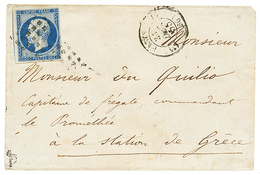 EMPIRE FRANC
Monsieur
Monsieur du Quilio
Capitaine de frégate, commandant
le Prométhée
à la station de Grèce